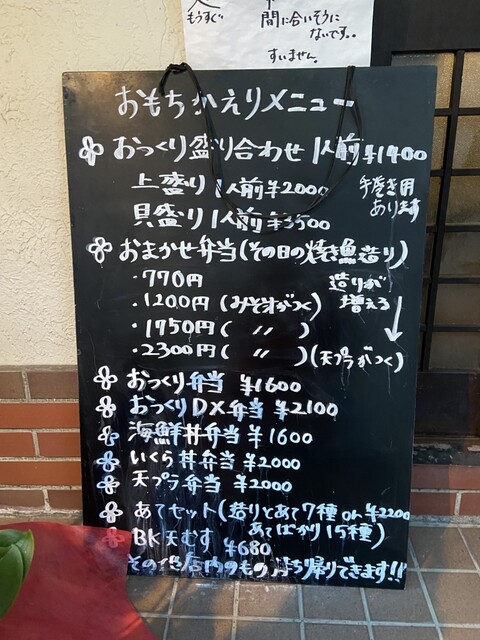 もうすぐ
間に合いそうに
ないです。。
すいません。
おもちかえりメニュー
おつくり盛り合わせ 1人前 ¥1400
上盛り 1人前 ¥2000
貝盛り 1人前 ¥3500
手巻き用
あります
おまかせ弁当(その日の焼き魚造り)
・770円
・1200円(みそ汁がつく)
・1750円( 〃 )
・2300円( 〃 )(天プラがつく)
造りが
増える
おつくり弁当 ¥1600
おつくりDX弁当 ¥2100
海鮮丼弁当 ¥1600
いくら丼弁当 ¥2000
天プラ弁当 ¥2000
あてセット(造りとあて7種 or ¥2200
あてばかり15種)
BK天むす ¥680
その他店内のもの持ち帰りできます!!